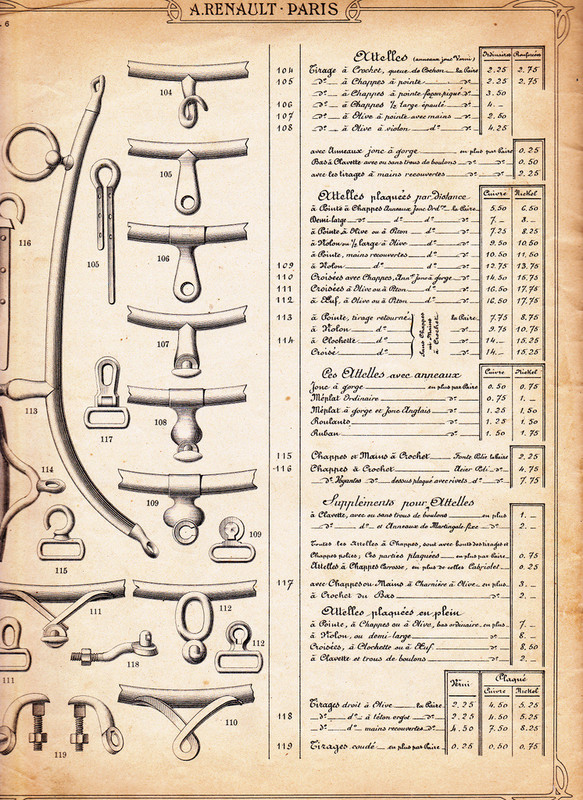 A. RENAULT · PARIS
6
Attelles (anneaux jonc Verni) Ordinaires Renforcées
104 Tirage à Crochet, queue de Cochon la Paire 2.25 2.75
105 d° à Chappes à pointe d° 2.25 2.75
d° à Chappes à pointe façon piqué d° 3.50
106 d° à Chappes ½ large épaulé d° 4. "
107 d° à Olive à pointe avec mains d° 2.50
108 d° à Olive à violon d° d° 4.25
avec Anneaux jonc à gorge en plus par Paire 0.25
Bas à Clavette avec ou sans trous de boulons d° d° 0.50
avec les tirages à mains recouvertes d° 2.25
Attelles plaquées par distance Cuivre Nickel
à Pointe à Chappes Anneaux Jonc Ord.re la Paire 5.50 6.50
Demi-large d° d° d° d° 7. " 8. "
à Pointe à Olive ou à Piton d° d° 7.25 8.25
à Nolon ou ½ large à Olive d° d° 9.50 10.50
à Pointe, mains recouvertes d° d° 10.50 11.50
109 à Nolon d° d° d° 12.75 13.75
110 Croisées avec Chappes, Aux Jonc à gorge d° 14.50 15.75
111 Croisées à Olive ou à Piton d° d° 16.50 17.75
112 à Œuf, à Olive ou à Piton d° d° 16.50 17.75
113 à Pointe, tirage retourné la Paire 7.75 8.75
à Nolon d° d° 9.75 10.75
114 à Clochette d° d° 14. " 15.25
Croisé d° d° 14. " 15.25
Sans Chappes
ni Mains
à Crochet
Ces Attelles avec anneaux Cuivre Nickel
Jonc à gorge en plus par Paire 0.50 0.75
Méplat Ordinaire d° 0.75 1. "
Méplat à gorge et Jonc Anglais d° 1.25 1.50
Roulants d° 1.25 1.50
Ruban d° 1.50 1.75
115 Chappes et Mains à Crochet Fonte Polie la Paire 2.25
116 Chappes à Crochet Acier Poli d° 4.75
d° dessus plaqué avec rivets d° 7.75
Suppléments pour Attelles
à Clavette, avec ou sans trous de boulons en plus 1. "
d° d° et Anneaux de Martingale fixe d° 2. "
Toutes les Attelles à Chappes, sont avec bouts des tirages et
Chappes polies; Ces parties plaquées en plus par Paire 0.75
Attelles à Chappes Carrosse, en plus de celles Cabriolet 0.25
117 avec Chappes ou Mains à Charnière à Olive en plus 3. "
à Crochet du Bas d° 2. "
Attelles plaquées en plein
à Pointe, à Chappes ou à Olive, bas ordinaire en plus 7. "
à Nolon, ou demi-large d° 8. "
Croisées, à Clochette ou à Œuf d° 8.50
à Clavette et trous de boulons d° 2. "
Verni Plaqué
Cuivre Nickel
Tirages droit à Olive la Paire 2.25 4.50 5.25
118 d° d° à téton ergot d° 2.25 4.50 5.25
d° d° mains recouvertes d° 4.50 7.50 8.25
119 Tirages coudé en plus par Paire 0.25 0.50 0.75
104
105
105
106
107
108
109
109
110
111
111
112
112
113
114
115
116
117
118
119